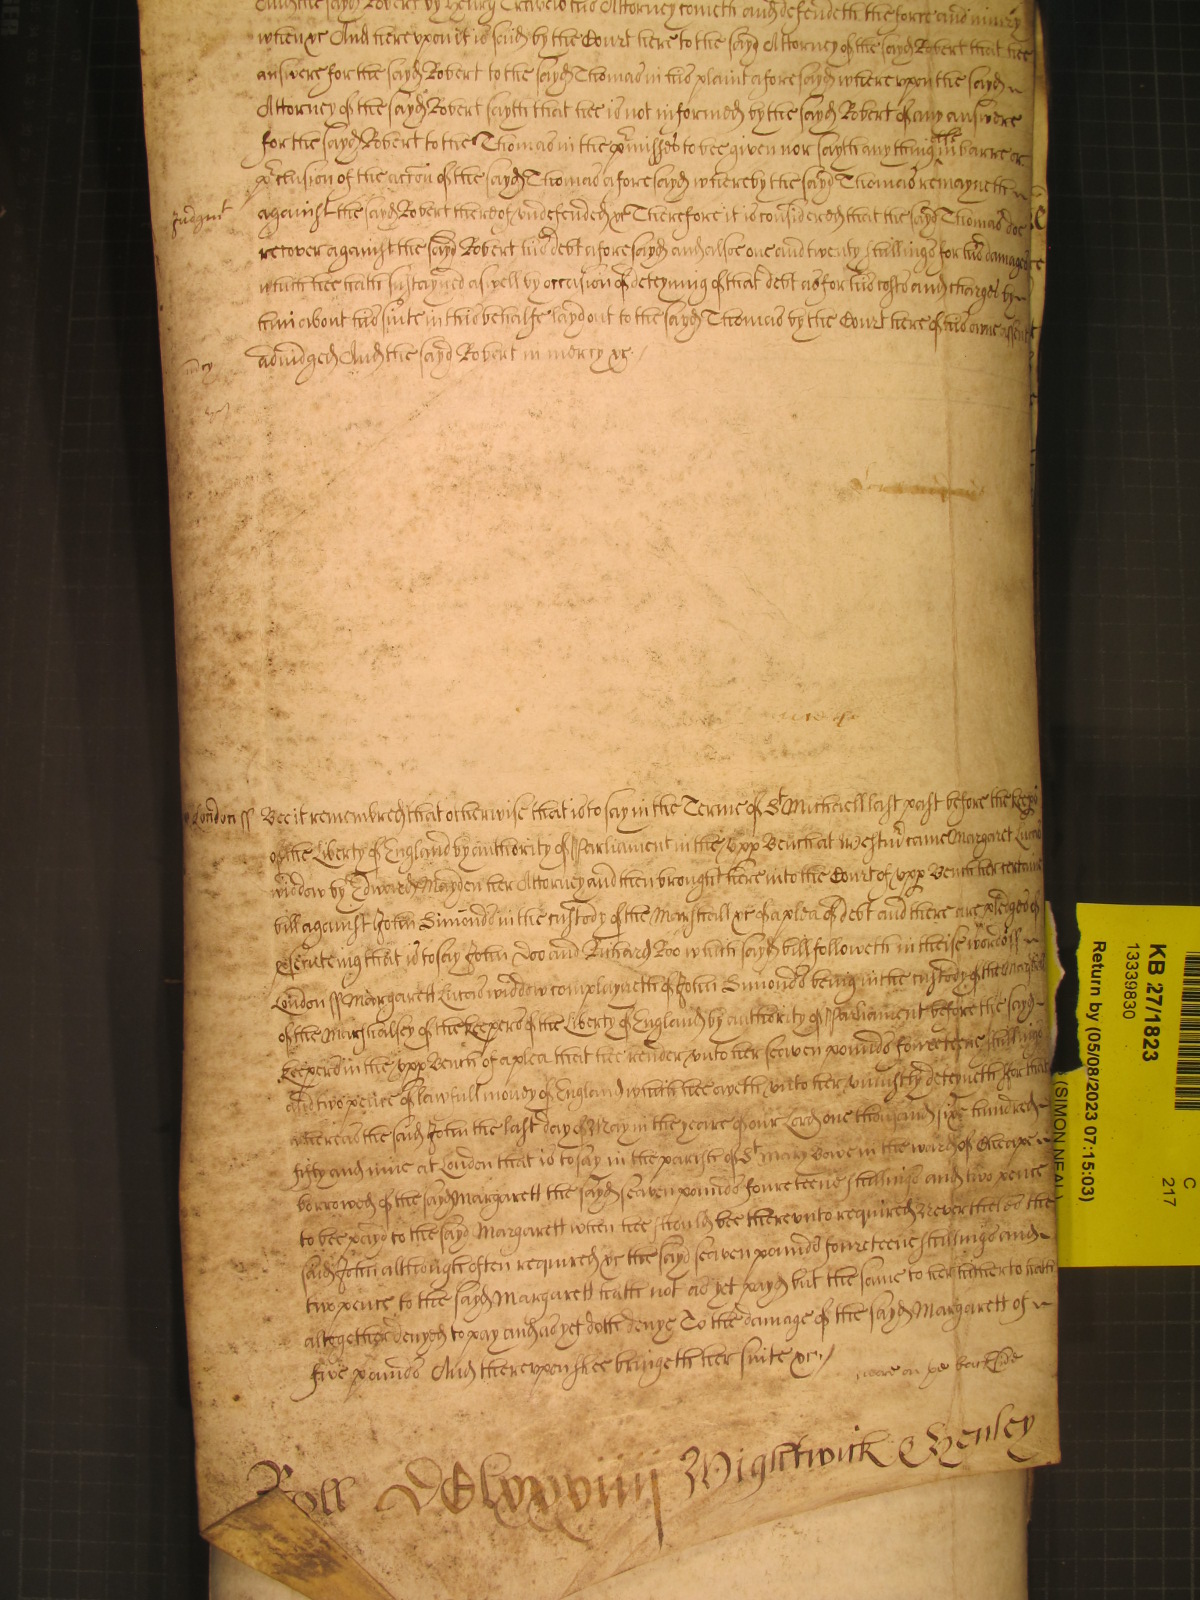 And the sayd Robert by Henry Travers his Attorney cometh and defendeth the force and iniury
when &c And hereupon it is said by the Court here to the sayd Attorney of the sayd Robert that hee
answere for the sayd Robert to the sayd Thomas in his plaint aforesayd whereupon the sayd
Attorney of the sayd Robert sayth that hee is not informed by the sayd Robert of any answere
for the sayd Robert to the Thomas in the p'misses to bee given nor sayth any thing in the barre or
p'clusion of the ac'con of the sayd Thomas aforesayd whereby the sayd Thomas remayneth
Judgmt against the sayd Robert thereof undefended &c Therefore it is considered that the sayd Thomas doe
recover against the sayd Robert his debt aforesayd and alsoe one and twenty shillings for his damages
which hee hath sustayned aswell by occasion of deteyning of that debt as for his costs and charges by
him about his suite in this behalfe layd out to the sayd Thomas by the Court here of his owne assent
adiudged And the sayd Robert in mercy &c
mcy
London ss Bee it remembred that otherwise that is to say in the Terme of St Michaell last past before the keeps
of the Liberty of England by authority of Parliament in the upp Bench at Westmr came Margaret Lucas
widdow by Edward Mayden her Attorney and then brought here into the Court of upp Bench her certaine
bill against John Simonds in the custody of the Marshall &c of a plea of debt and there are pledges of
p'secuteing that is to say John Doo and Richard Roo which sayd bill followeth in theise words ss
London ss Margarett Lucas widdow complayneth of John Simonds being in the custody of the Marshall
of the Marshalsey of the keepers of the Liberty of England by authority of Parliament before the sayd
keepers in the upp Bench of a plea that hee render unto her seaven pounds foureteene shillings
and two pence of lawfull money of England which hee oweth unto her uniustly deteyneth For that
whereas the said John the last day of May in the yeare of our Lord one thousand sixe hundred
fifty and nine at London that is to say in the parish of St Mary Bowe in the ward of Cheape
borrowed of the sayd Margarett the sayd seaven pounds foureteene shillings and two pence
to bee payd to the sayd Margarett when hee should bee thereunto required Neverthelas the
said John although often required &c the sayd seaven pounds foureteene shillings and
two pence to the sayd Margarett hath not as yet payd but the same to her hitherto hath
altogether denyed to pay and as yet doth denye To the damage of the sayd Margarett of
five pounds And thereupon shee bringeth her suite &c
more on ye backside
Roll DClxxviiij Wightwick & Henley
KB 27/1823
13339830
Return by (05/08/2023 07:15:03)
(SIMON NEAL)
C
217